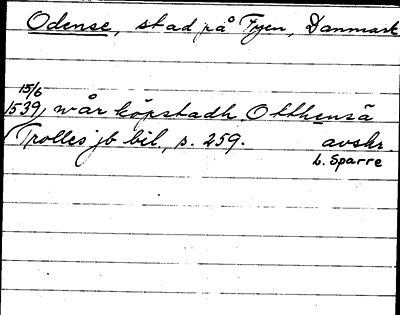 Odense, stad på Fyen, Danmark
15/6
1539, wår köpstadh Otthensä
Trolles jb bil., s. 259. avskr.
L. Sparre